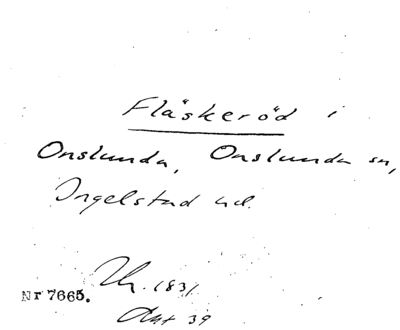 Fläskeröd i
Onslunda, Onslunda sn,
Ingelstad hd.
1831
Nr 7665.
Akt 39